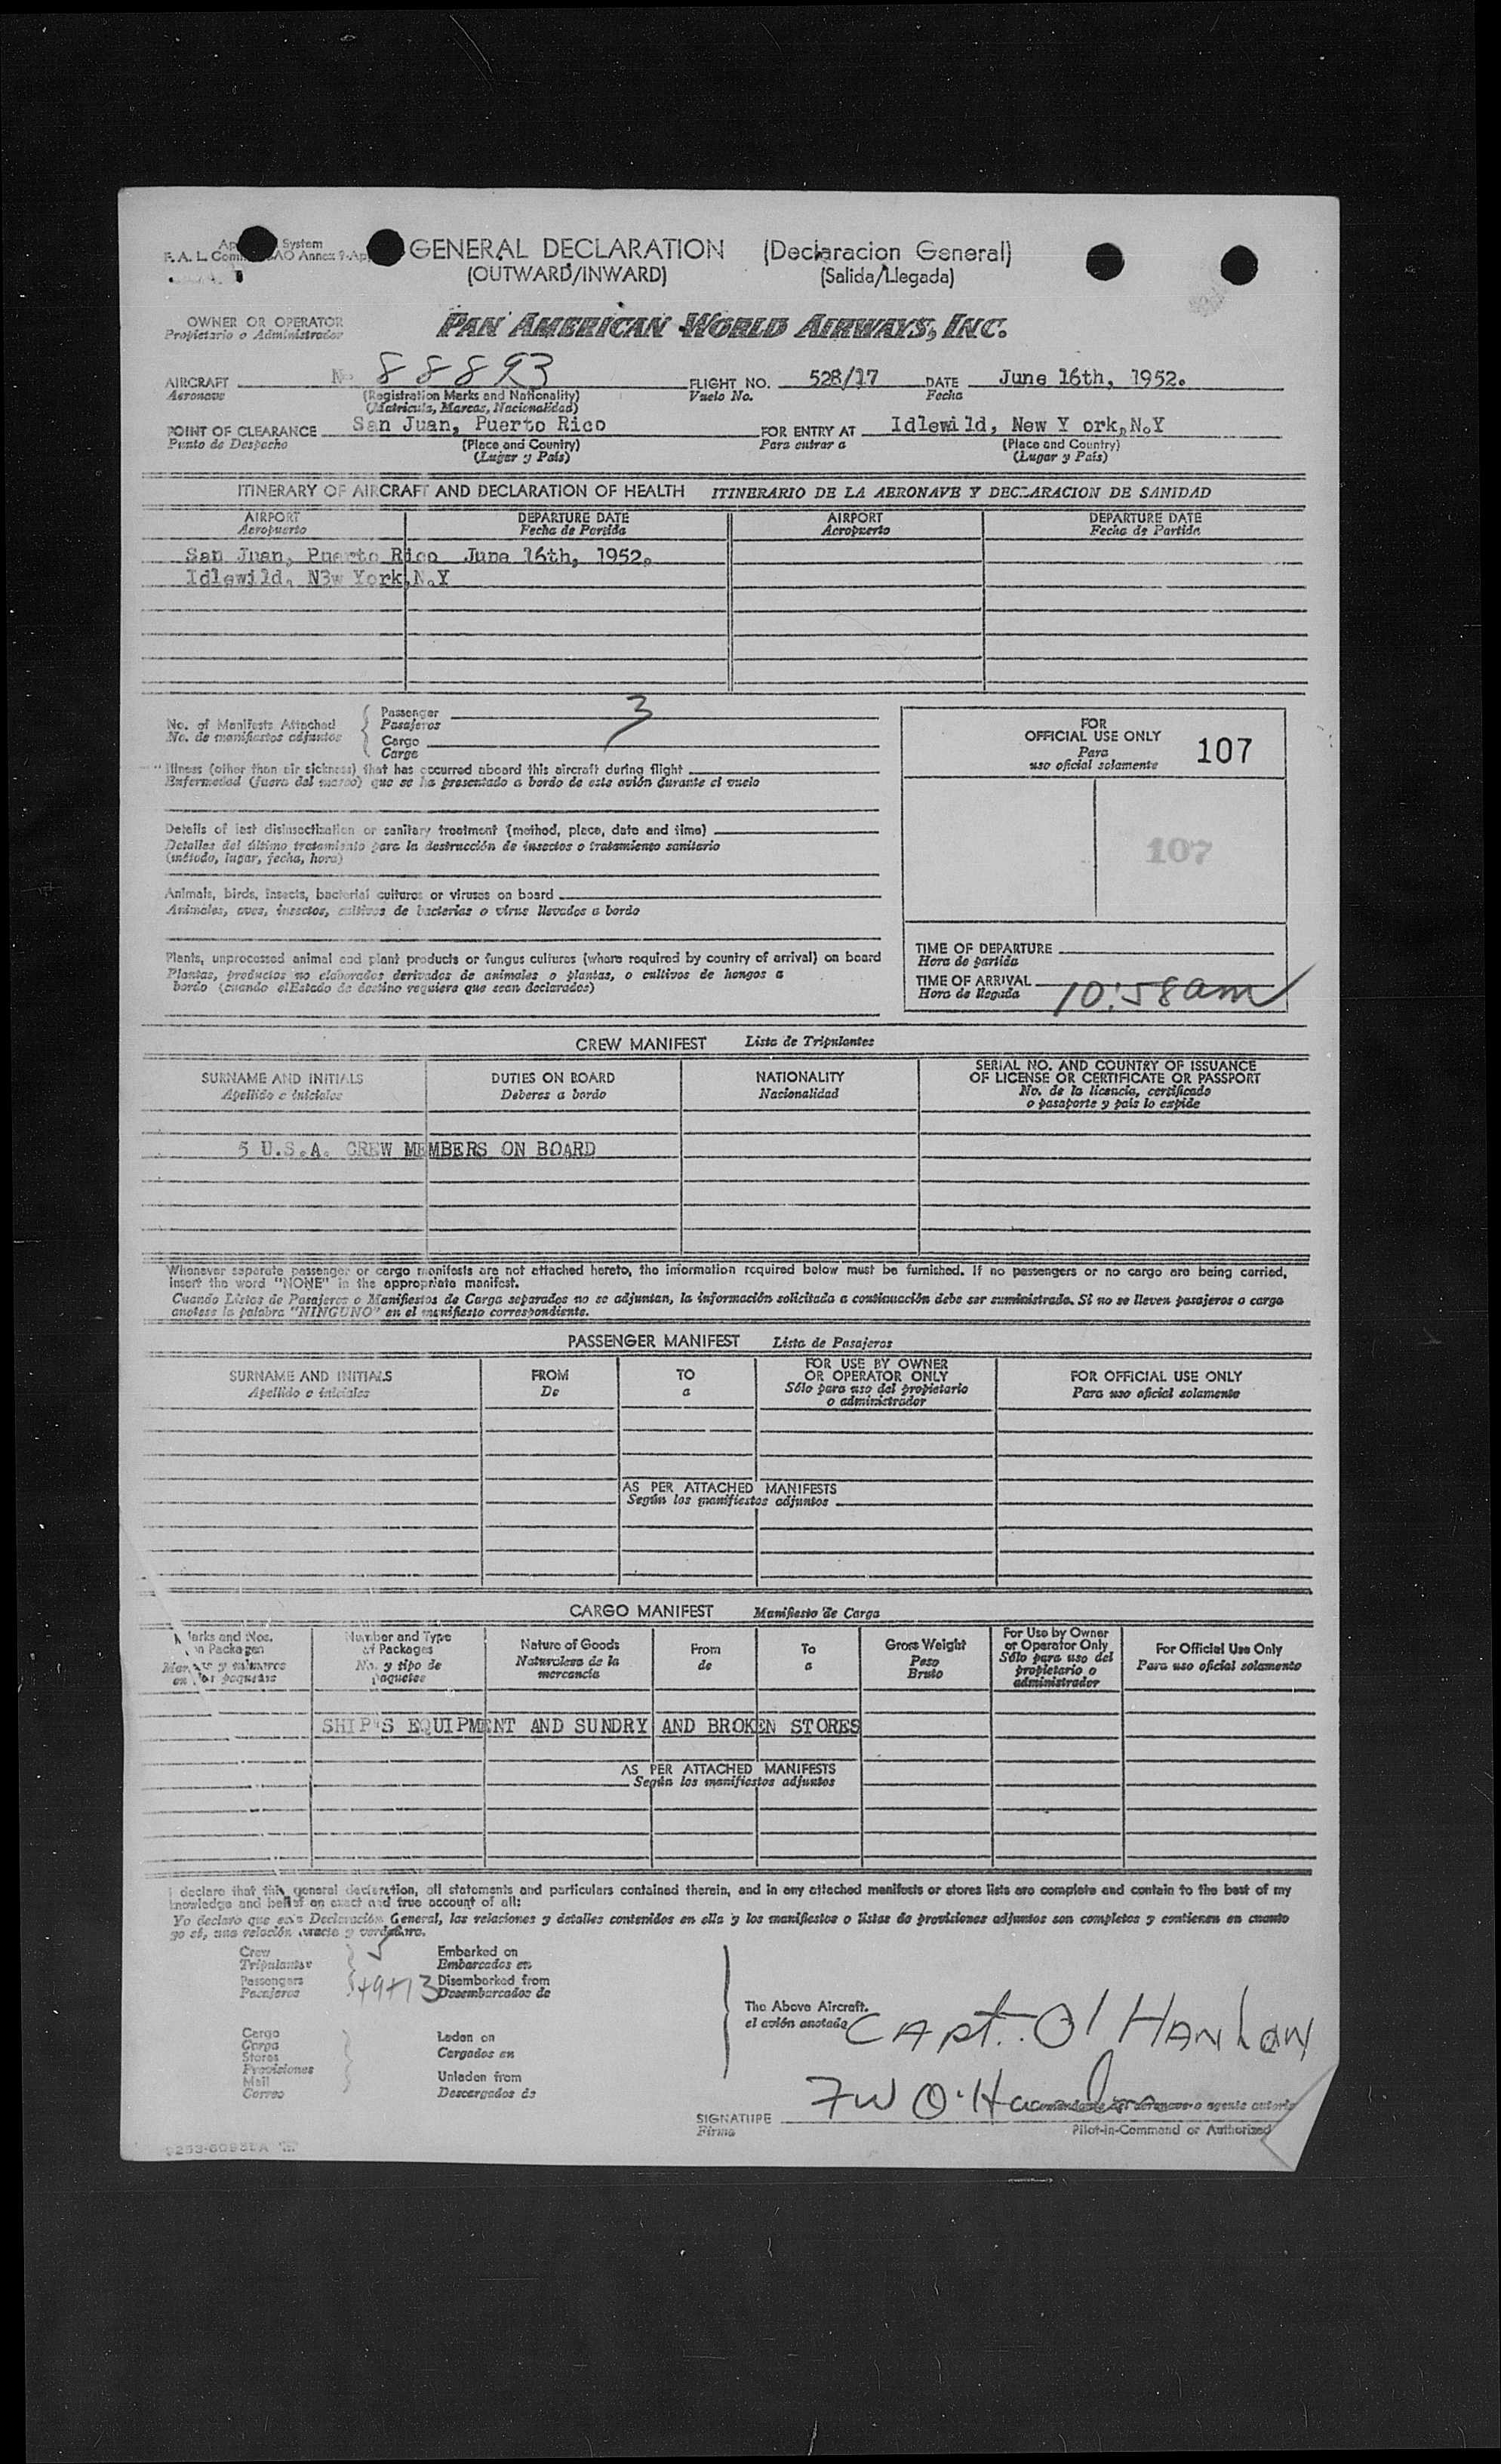 System
GENERAL DECLARATION (Declaracion General)
(OUTWARD/INWARD) (Salida/Llegada)
OWNER OR OPERATOR
Propietario o Administrador
PAN AMERICAN WORLD AIRWAYS, INC.
AIRCRAFT N- 88893 FLIGHT NO. 528/17 DATE June 16th, 1952.
Aeronave (Registration Marks and Nationality) Vuelo No. Fecha
(Matricula, Marcas, Nacionalidad)
POINT OF CLEARANCE San Juan, Puerto Rico FOR ENTRY AT Idlewild, New Y ork, N.Y
Punto de Despacho (Place and Country) Para entrar a (Place and Country)
(Lugar y País) (Lugar y País)
ITINERARY OF AIRCRAFT AND DECLARATION OF HEALTH ITINERARIO DE LA AERONAVE Y DECLARACION DE SANIDAD
AIRPORT DEPARTURE DATE AIRPORT DEPARTURE DATE
Aeropuerto Fecha de Partida Aeropuerto Fecha de Partida
San Juan, Puerto Rico June 16th, 1952.
Idlewild, N3w York, N.Y
No. of Manifests Attached
No. de manifiestos adjuntos
Passenger
Pasajeros
3
Cargo
Carga
Illness (other than air sickness) that has occurred aboard this aircraft during flight
Enfermedad (fuera del mareo) que se ha presentado a bordo de este avión durante el vuelo
Details of last disinsectization or sanitary treatment (method, place, date and time)
Detalles del último tratamiento para la destrucción de insectos o tratamiento sanitario
(método, lugar, fecha, hora)
Animals, birds, insects, bacterial cultures or viruses on board
Animales, aves, insectos, cultivos de bacterias o virus llevados a bordo
Plants, unprocessed animal and plant products or fungus cultures (where required by country of arrival) on board
Plantas, productos no elaborados derivados de animales o plantas, o cultivos de hongos a
bordo (cuando elEstado de destino requiera que sean declarados)
FOR
OFFICIAL USE ONLY
Para
uso oficial solamente
107
107
TIME OF DEPARTURE
Hora de partida
TIME OF ARRIVAL 10:58 am
Hora de llegada
CREW MANIFEST Lista de Tripulantes
SURNAME AND INITIALS DUTIES ON BOARD NATIONALITY SERIAL NO. AND COUNTRY OF ISSUANCE
OF LICENSE OR CERTIFICATE OR PASSPORT
Apellido e iniciales Deberes a bordo Nacionalidad No. de la licencia, certificado
o pasaporte y país lo expide
5 U.S.A. CREW MEMBERS ON BOARD
Whenever separate passenger or cargo manifests are not attached hereto, the information required below must be furnished. If no passengers or no cargo are being carried,
insert the word "NONE" in the appropriate manifest.
Cuando Listas de Pasajeros o Manifiestos de Carga separados no se adjuntan, la información solicitada a continuación debe ser suministrada. Si no se lleven pasajeros o carga
anotese la palabra "NINGUNO" en el manifiesto correspondiente.
PASSENGER MANIFEST Lista de Pasajeros
SURNAME AND INITIALS FROM TO FOR USE BY OWNER
OR OPERATOR ONLY FOR OFFICIAL USE ONLY
Apellido e iniciales De a Sólo para uso del propietario
o administrador Para uso oficial solamente
AS PER ATTACHED MANIFESTS
Según los manifiestos adjuntos
CARGO MANIFEST Manifiesto de Carga
Marks and Nos.
on Packages
Number and Type
of Packages
No. y tipo de
paquetes
Nature of Goods
Naturaleza de la
mercancía
From
de
To
a
Gross Weight
Peso
Bruto
For Use by Owner
or Operator Only
Sólo para uso del
propietario o
administrador
For Official Use Only
Para uso oficial solamente
SHIP'S EQUIPMENT AND SUNDRY AND BROKEN STORES
AS PER ATTACHED MANIFESTS
Según los manifiestos adjuntos
I declare that this general declaration, all statements and particulars contained therein, and in any attached manifests or stores lists are complete and contain to the best of my
knowledge and belief an exact and true account of all:
Yo declaro que esta Declaración General, las relaciones y detalles contenidos en ella y los manifiestos o listas de provisiones adjuntos son completos y contienen en cuanto
yo sé, una relación exacta y verdadera.
Crew 5 Embarked on
Tripulantes Embarcados en
Passengers 49+13 Disembarked from
Pasajeros Desembarcados de
Cargo
Carga
Stores
Provisiones
Mail
Correo
Laden on
Cargados en
Unladen from
Descargados de
The Above Aircraft.
el avión anotado
CAPt. O'HANLON
SIGNATURE FW O'Hanlon
Firma
Comandante de aeronave o agente autoriz
Pilot-in-Command or Authorized